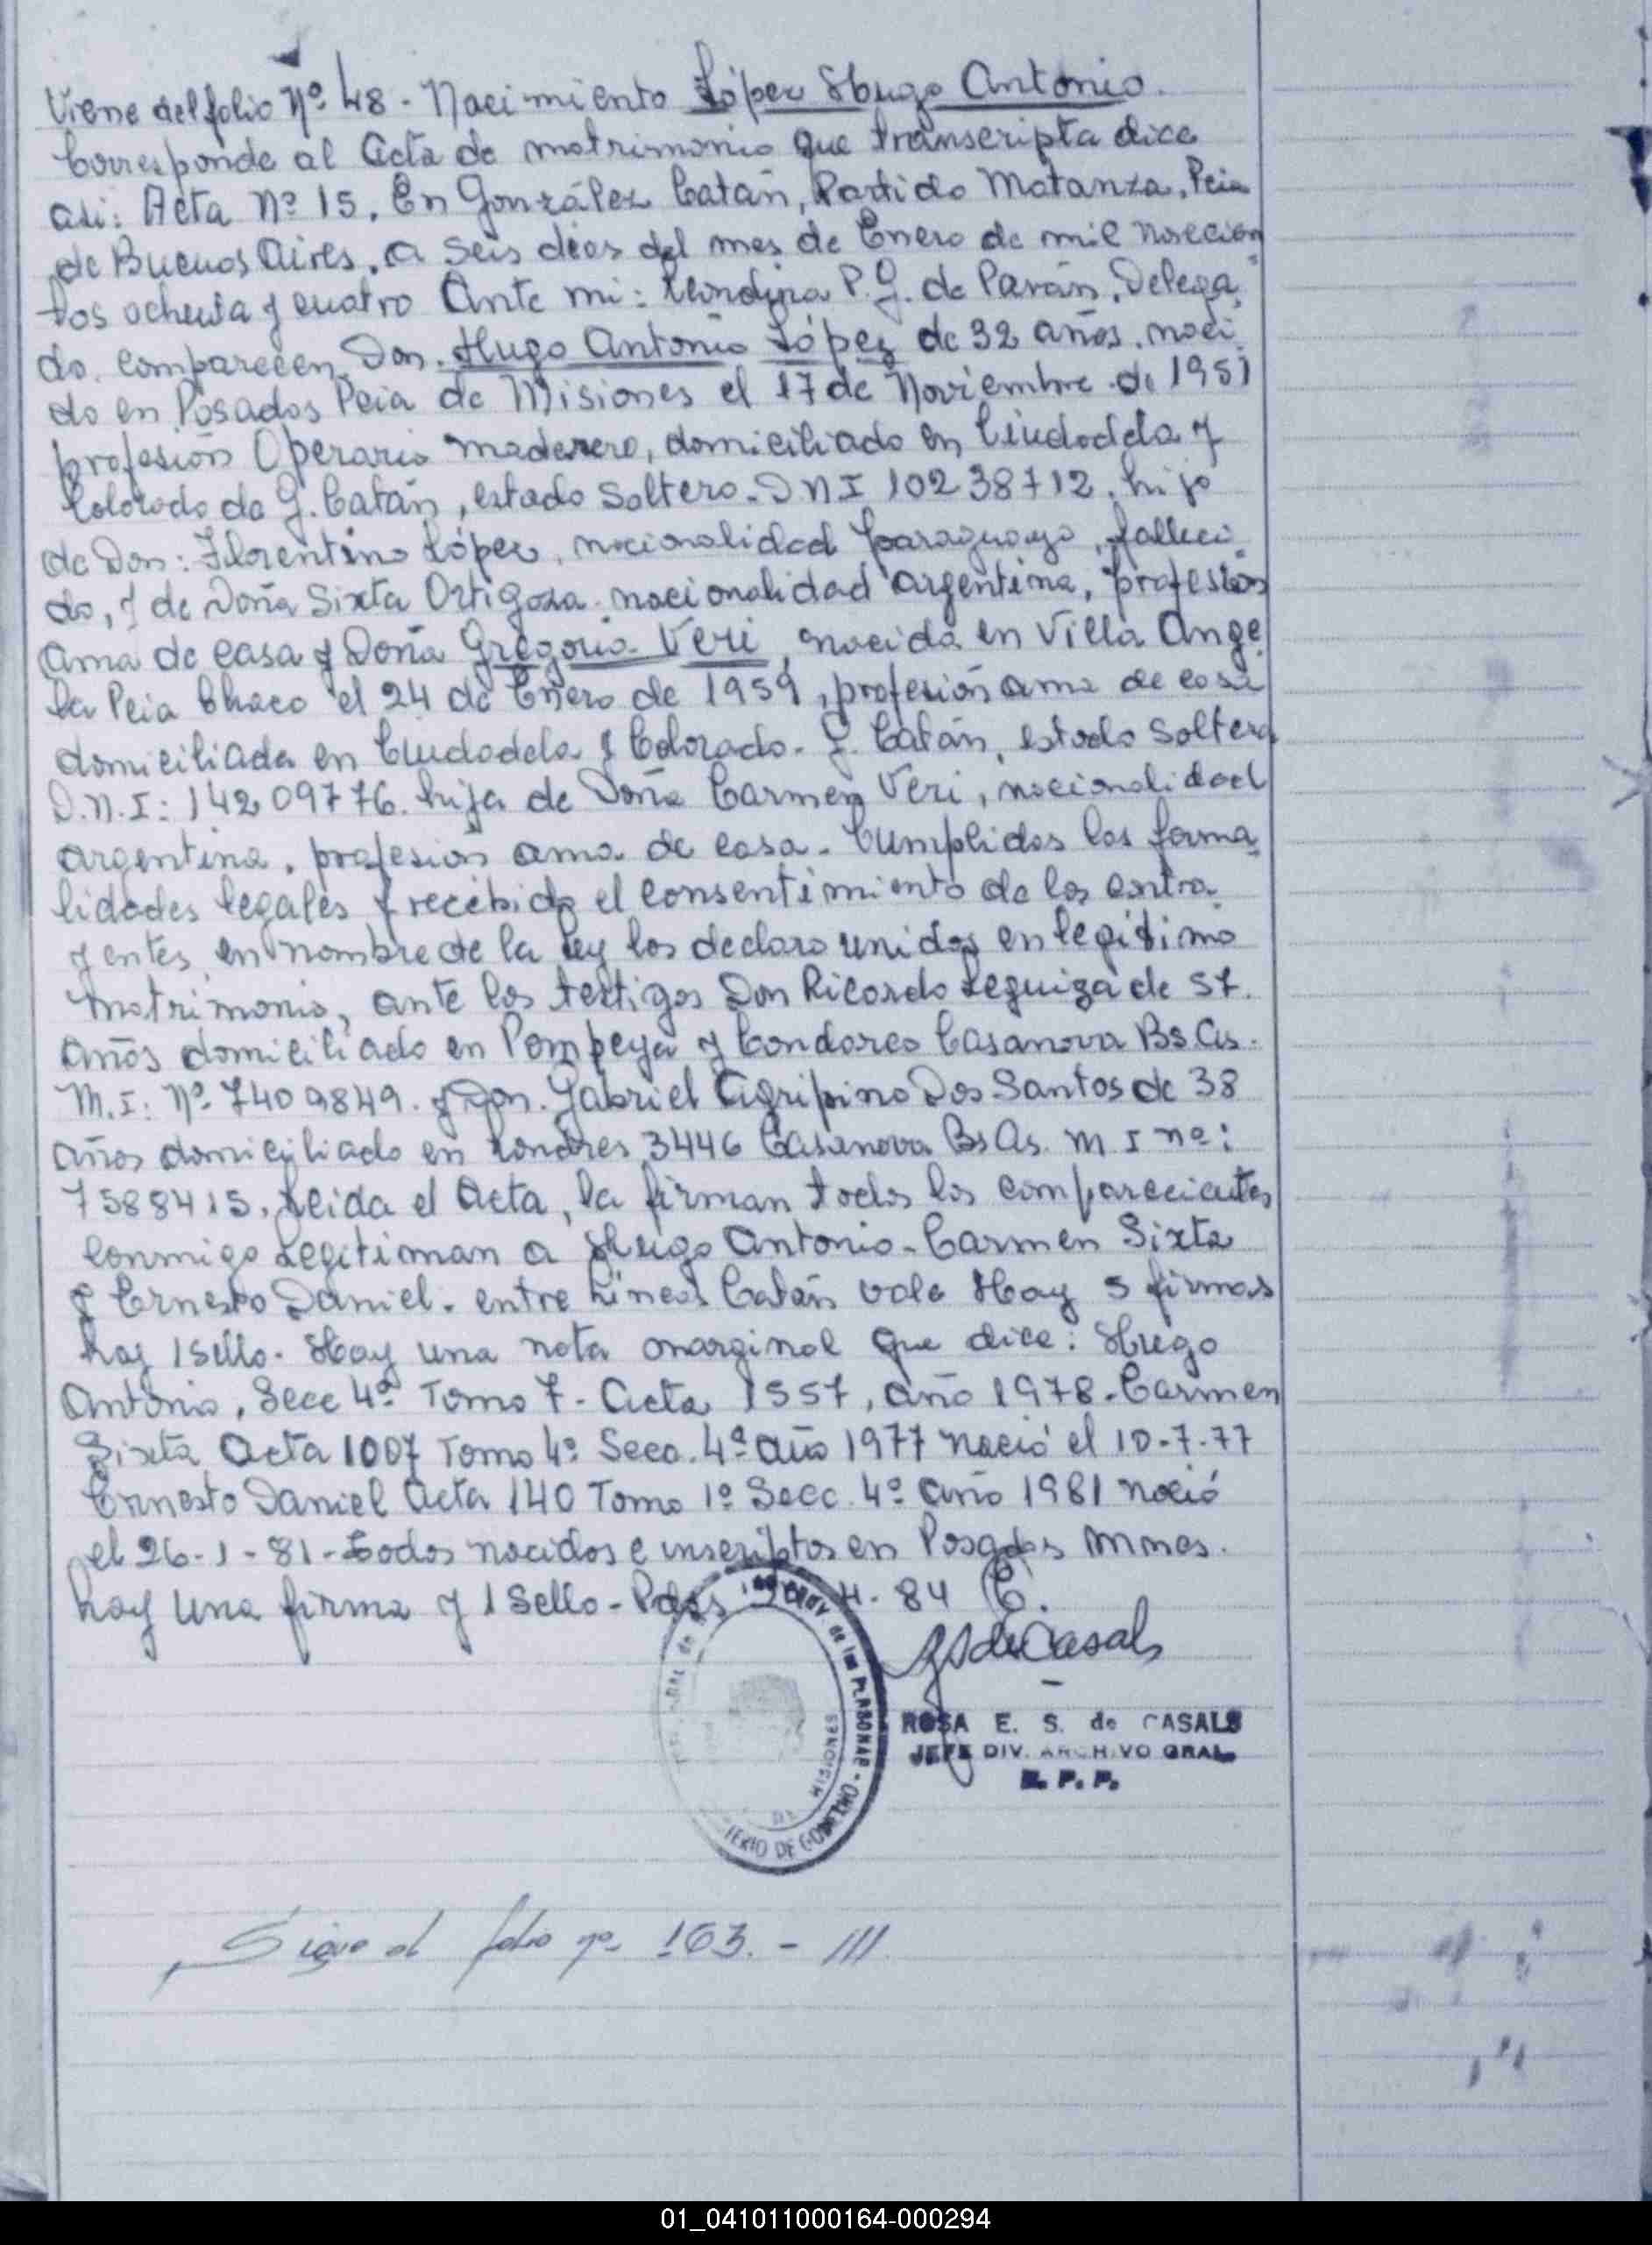 Viene del folio Nº 48 - Nacimiento López Hugo Antonio.
Corresponde al Acta de matrimonio que transcripta dice
asi: Acta Nº 15. En González Catán, Partido Matanza, Pcia
de Buenos Aires, a seis dias del mes de Enero de mil novecien
tos ochenta y cuatro Ante mi: P. G. de Paván, Delega
do, comparecen Don. Hugo Antonio López de 32 años, naci
do en Posadas Pcia de Misiones el 17 de Noviembre de 1951
profesión Operario maderero, domiciliado en Ciudadela y
Colorado de G. Catán, estado soltero. D N I 10238712, hijo
de Don: Florentino López, nacionalidad Paraguaya, falleci
do, y de Doña Sixta Ortigoza nacionalidad argentina, profesion
ama de casa y Doña Gregoria Veri, nacida en Villa Ange
la Pcia Chaco el 24 de Enero de 1959, profesión ama de casa
domiciliada en Ciudadela y Colorado - G. Catán, estado soltera
D.N.I: 14209776. hija de Doña Carmen Veri, nacionalidad
argentina, profesión ama de casa - Cumplidas las forma
lidades legales y recibido el consentimiento de los contra
yentes, en nombre de la Ley los declaro unidos en legitimo
matrimonio, ante los testigos Don Ricardo Leguiza de 57
años domiciliado en Pompeya y Condarco Casanova Bs As.
M.I: Nº 7409849. y Don. Gabriel Agripino Dos Santos de 38
años domiciliado en Londres 3446 Casanova Bs As. M I nº:
7588415. Leida el Acta, la firman todos los comparecientes
conmigo Legitiman a Hugo Antonio - Carmen Sixta
y Ernesto Daniel - entre Lineas Catán vale Hay 5 firmas
hay 1 sello. Hay una nota marginal que dice: Hugo
Antonio, Secc 4º Tomo 7 - Acta 1557, año 1978 - Carmen
Sixta Acta 1007 Tomo 4º Secc. 4º año 1977 nació el 10-7-77
Ernesto Daniel Acta 140 Tomo 1º Secc. 4º año 1981 nació
el 26-1-81 - Todos nacidos e inscriptos en Posadas Mnes.
hay una firma y 1 Sello - Pdas 4 - 84
de Casals
de las PERSONAS - MISIONES
ROSA E. S. de CASALS
JEFE DIV. ARCHIVO GRAL.
R. P. P.
Sigue al folio nº 163. - ///
01_041011000164-000294